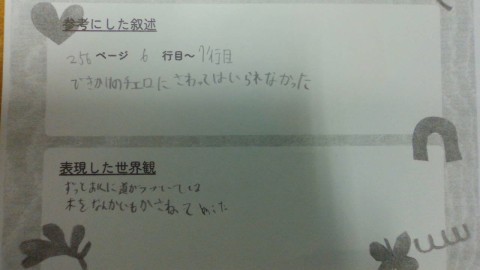 参考にした叙述
256 ページ 6 行目~ 7行目
チェロに さわってはいられなかった
表現した世界観
ずっとおくに道がつづいている
木をなんかいもかさねて